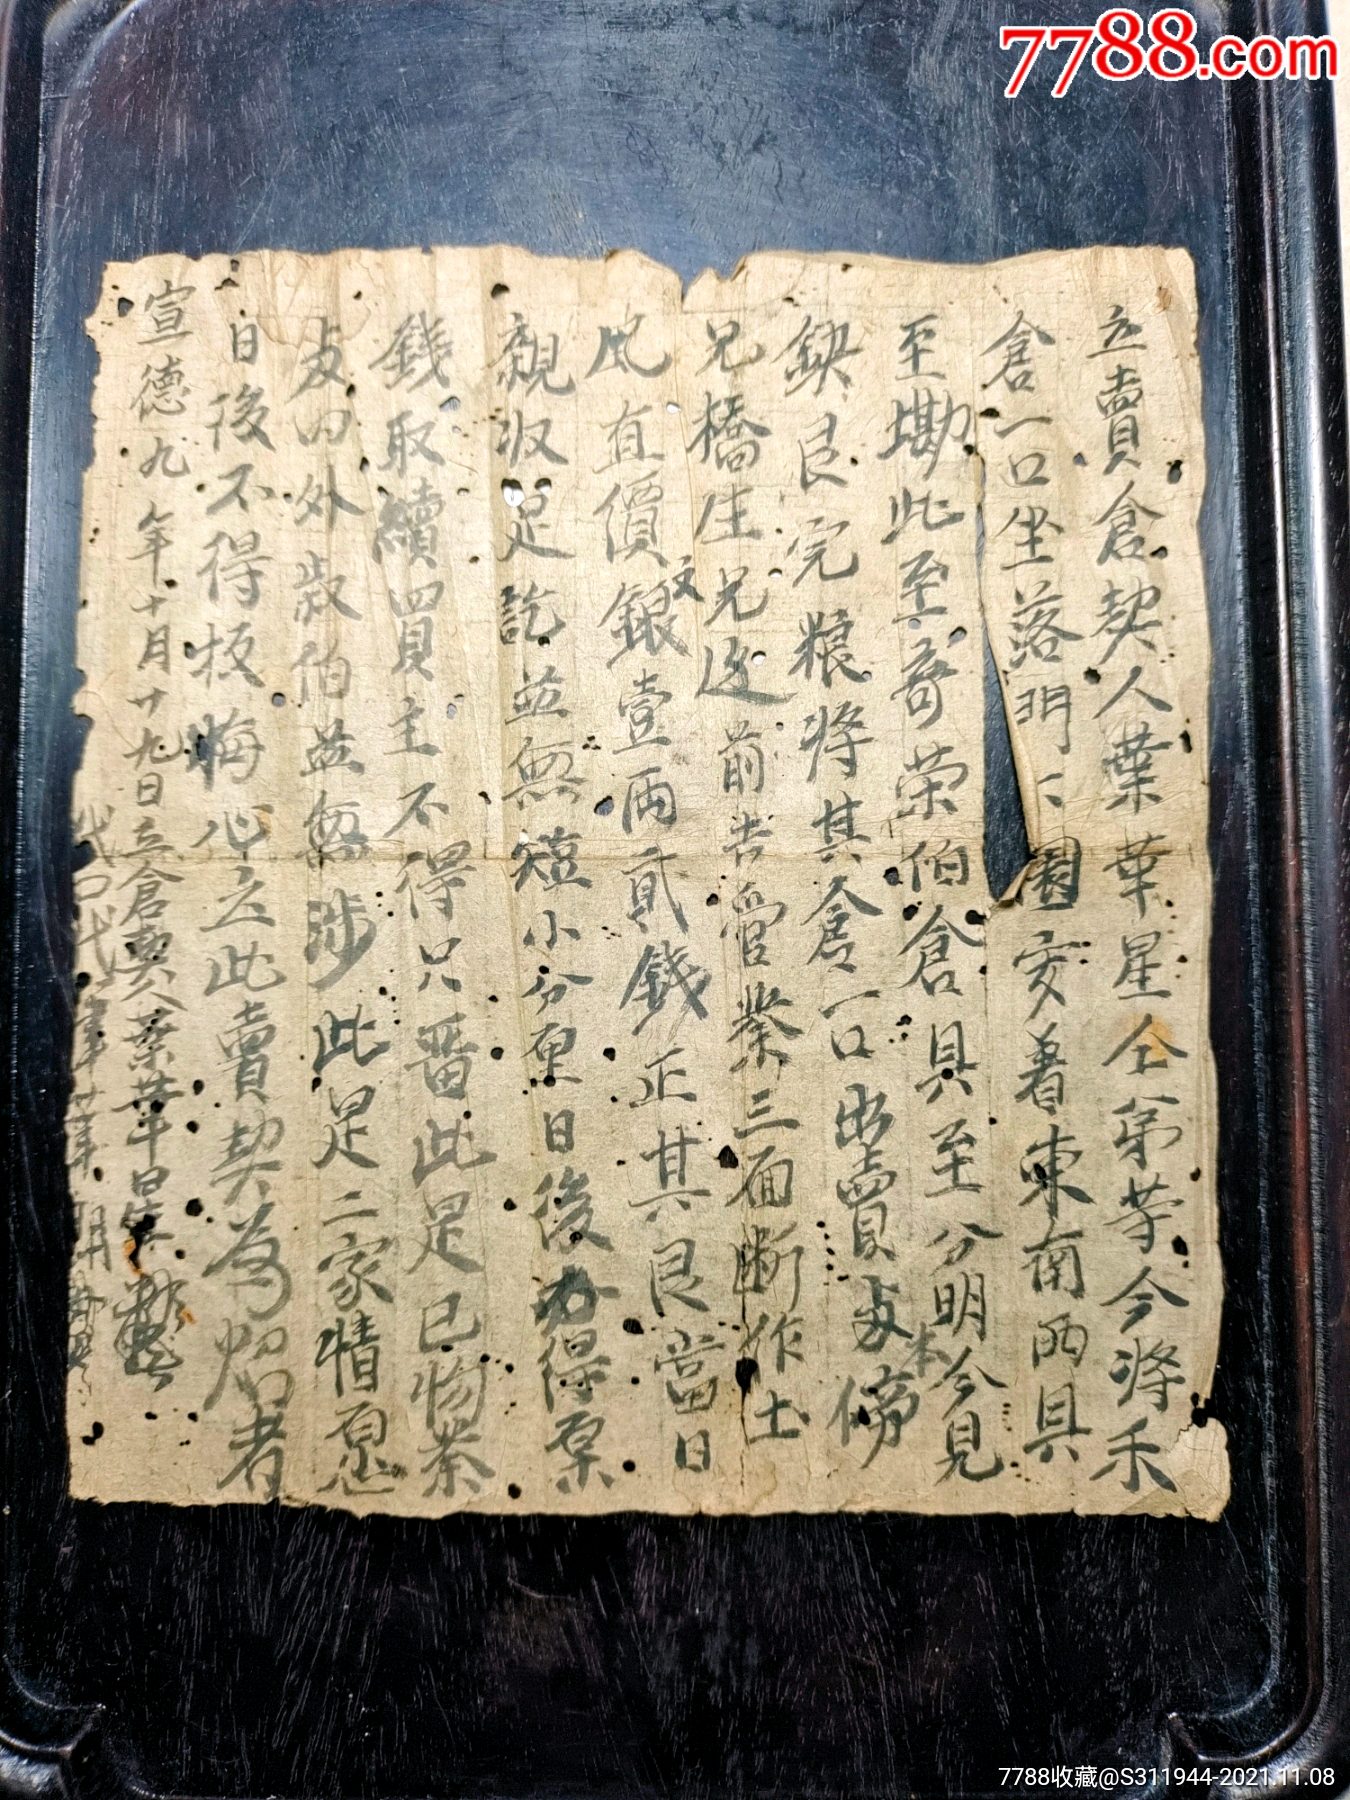 7788.com
立賣倉契人葉華星仝弟等今將禾
倉一口坐落明下園安着東南西具
至墈北至奇荣伯倉具至分明今見
缺艮完粮将其倉一口出賣与本傍
兄橋生兄边前去管業三面断作土
風直價銀壹两貳錢正其艮當日
親收足訖並無短小分厘日後办得原
錢取續四買主不得只畱此是已物業
与内外叔伯並無涉此是二家情愿
日後不得板悔心立此賣契為炤者
宣德九年十月廿九日立倉契人葉華星
7788收藏@S311944-2021.11.08